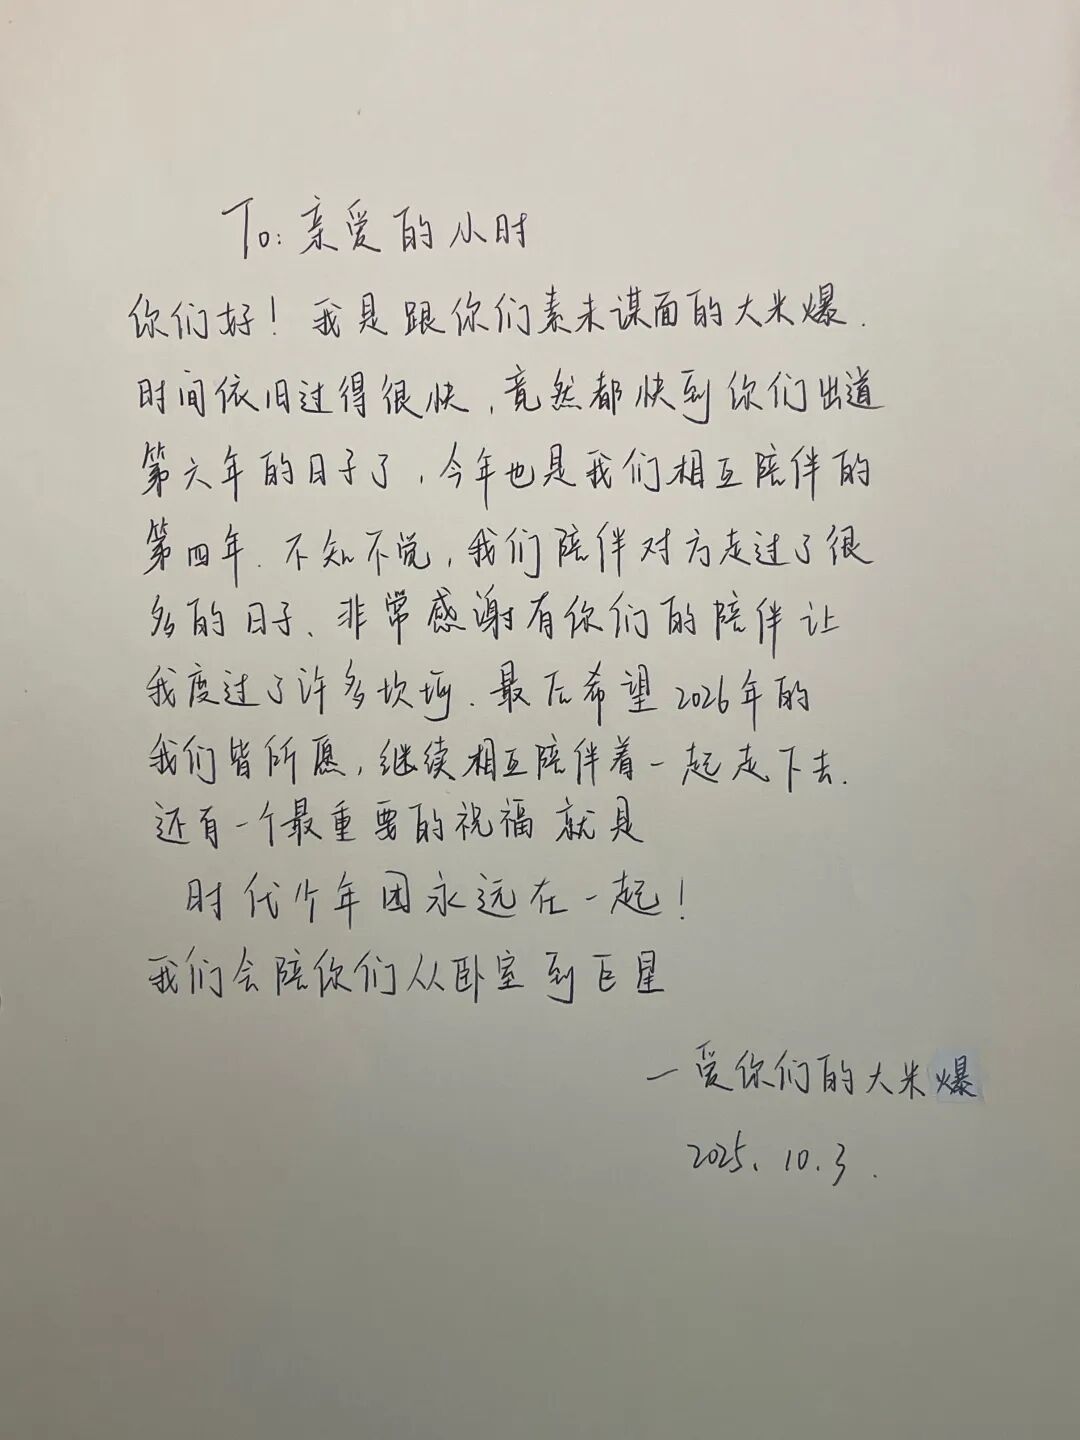 To: 亲爱的小时
你们好！我是跟你们素未谋面的大米爆.
时间依旧过得很快，竟然都快到你们出道
第六年的日子了，今年也是我们相互陪伴的
第四年. 不知不觉，我们陪伴对方走过了很
多的日子、非常感谢有你们的陪伴让
我度过了许多坎坷. 最后希望2026年的
我们皆所愿，继续相互陪伴着一起走下去.
还有一个最重要的祝福就是
时代少年团永远在一起！
我们会陪你们从卧室到巨星
一爱你们的大米爆
2025. 10. 3.